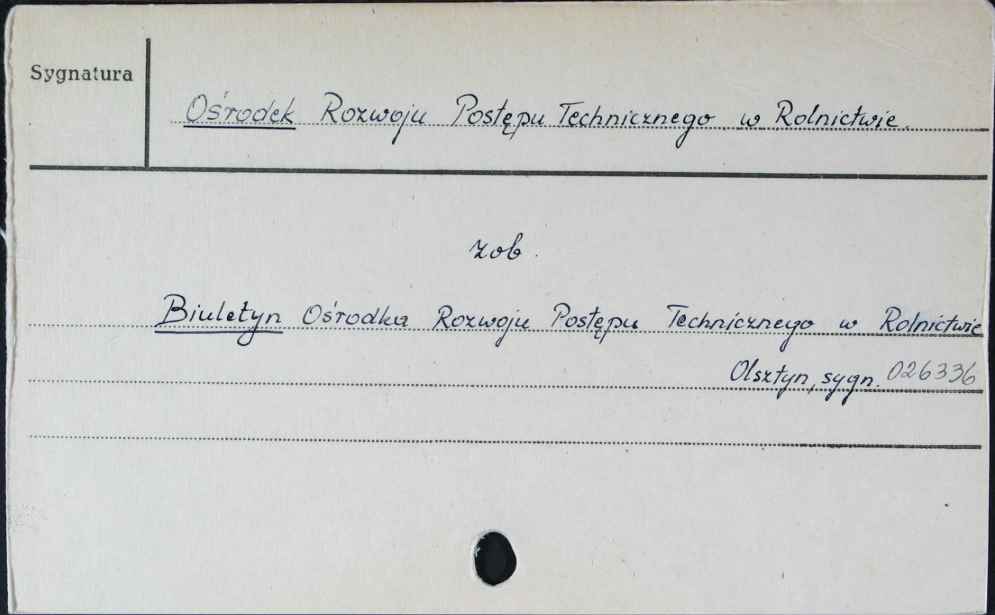 Sygnatura
Ośrodek Rozwoju Postępu Technicznego w Rolnictwie
zob.
Biuletyn Ośrodka Rozwoju Postępu Technicznego w Rolnictwie
Olsztyn, sygn. 026336